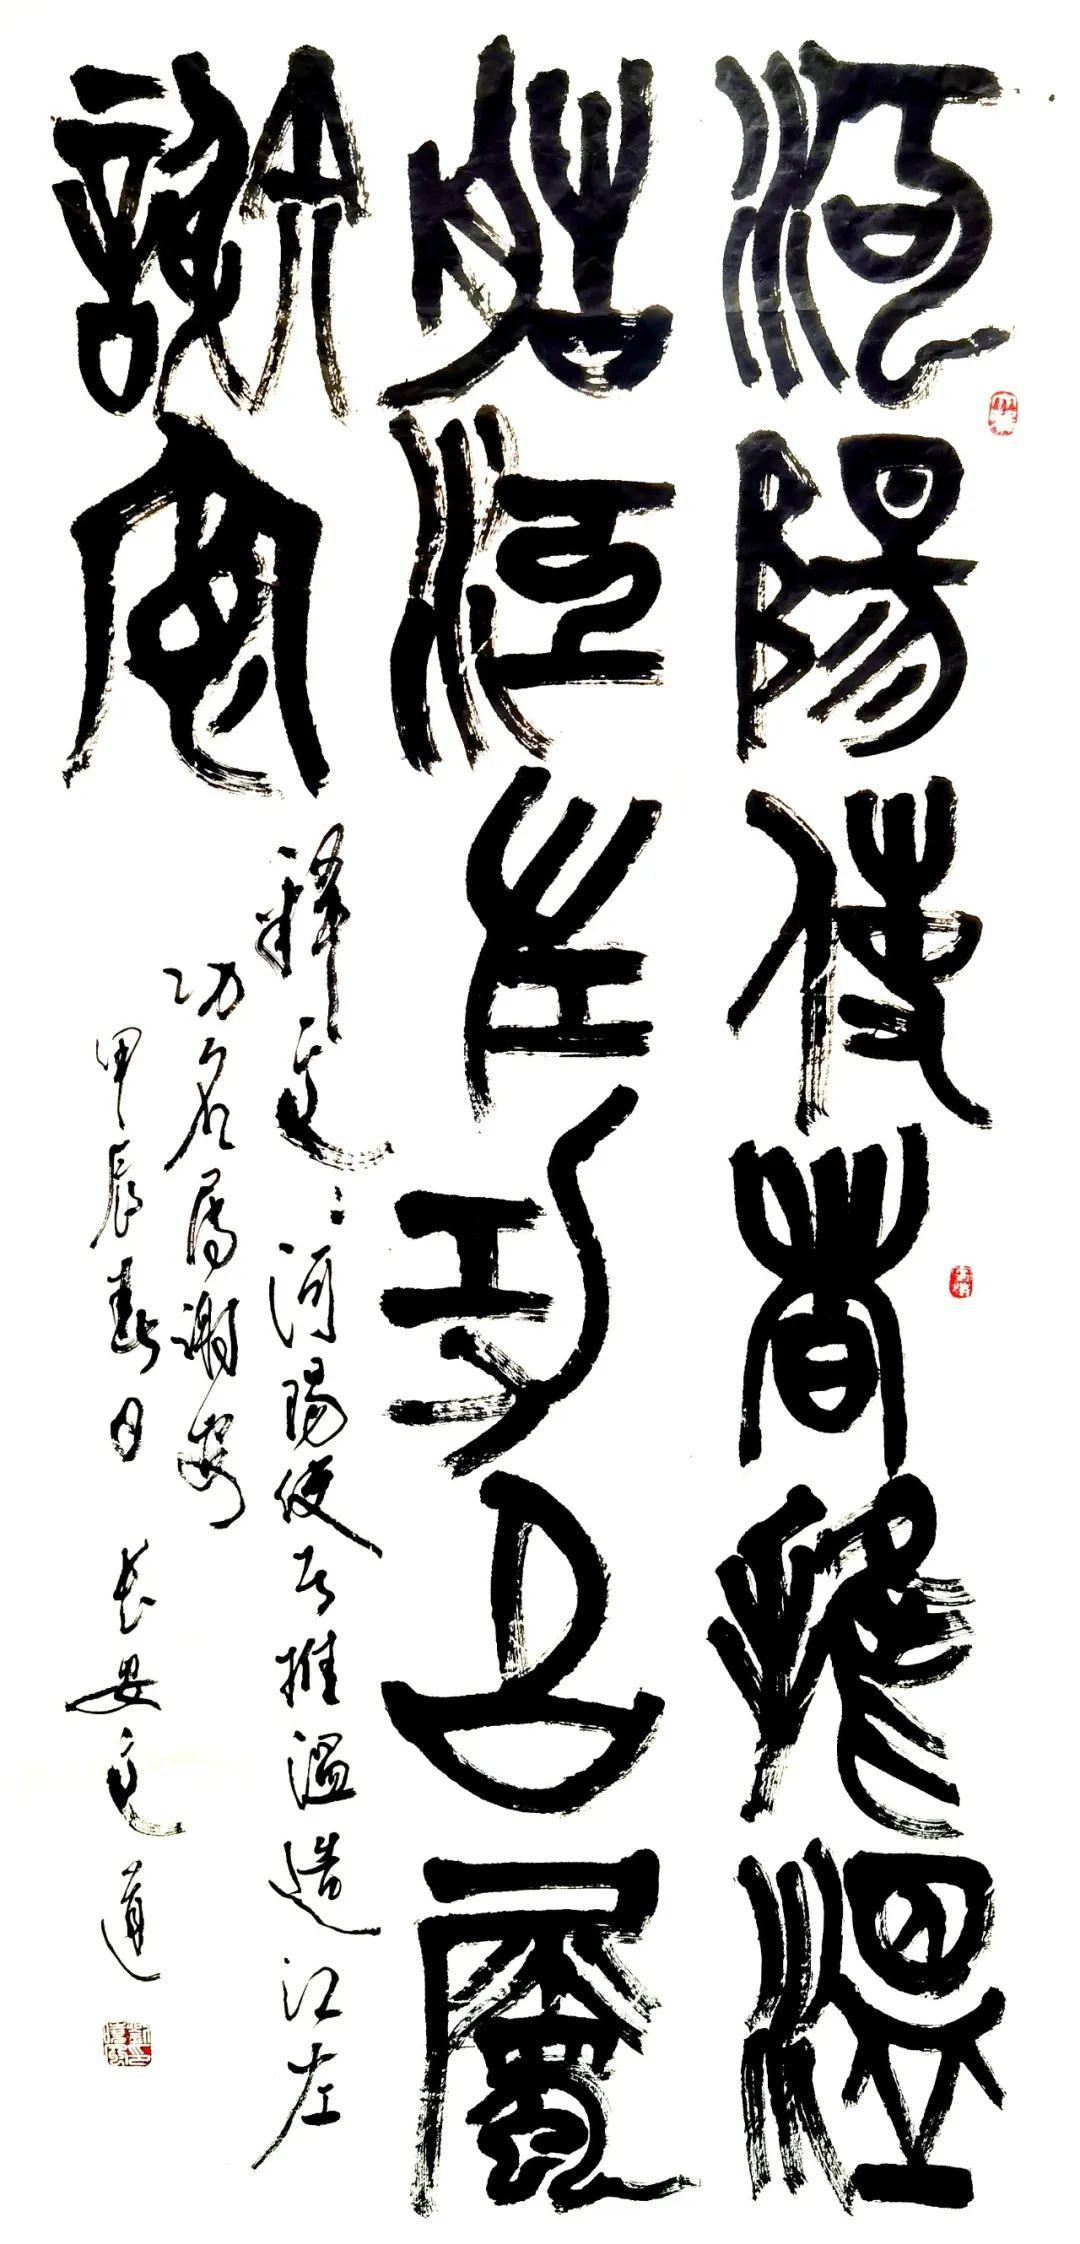 河陽使者推溫
造江左功名屬
謝安
释文：河陽使者推溫造江左
功名属謝安
甲辰春日 長安文道